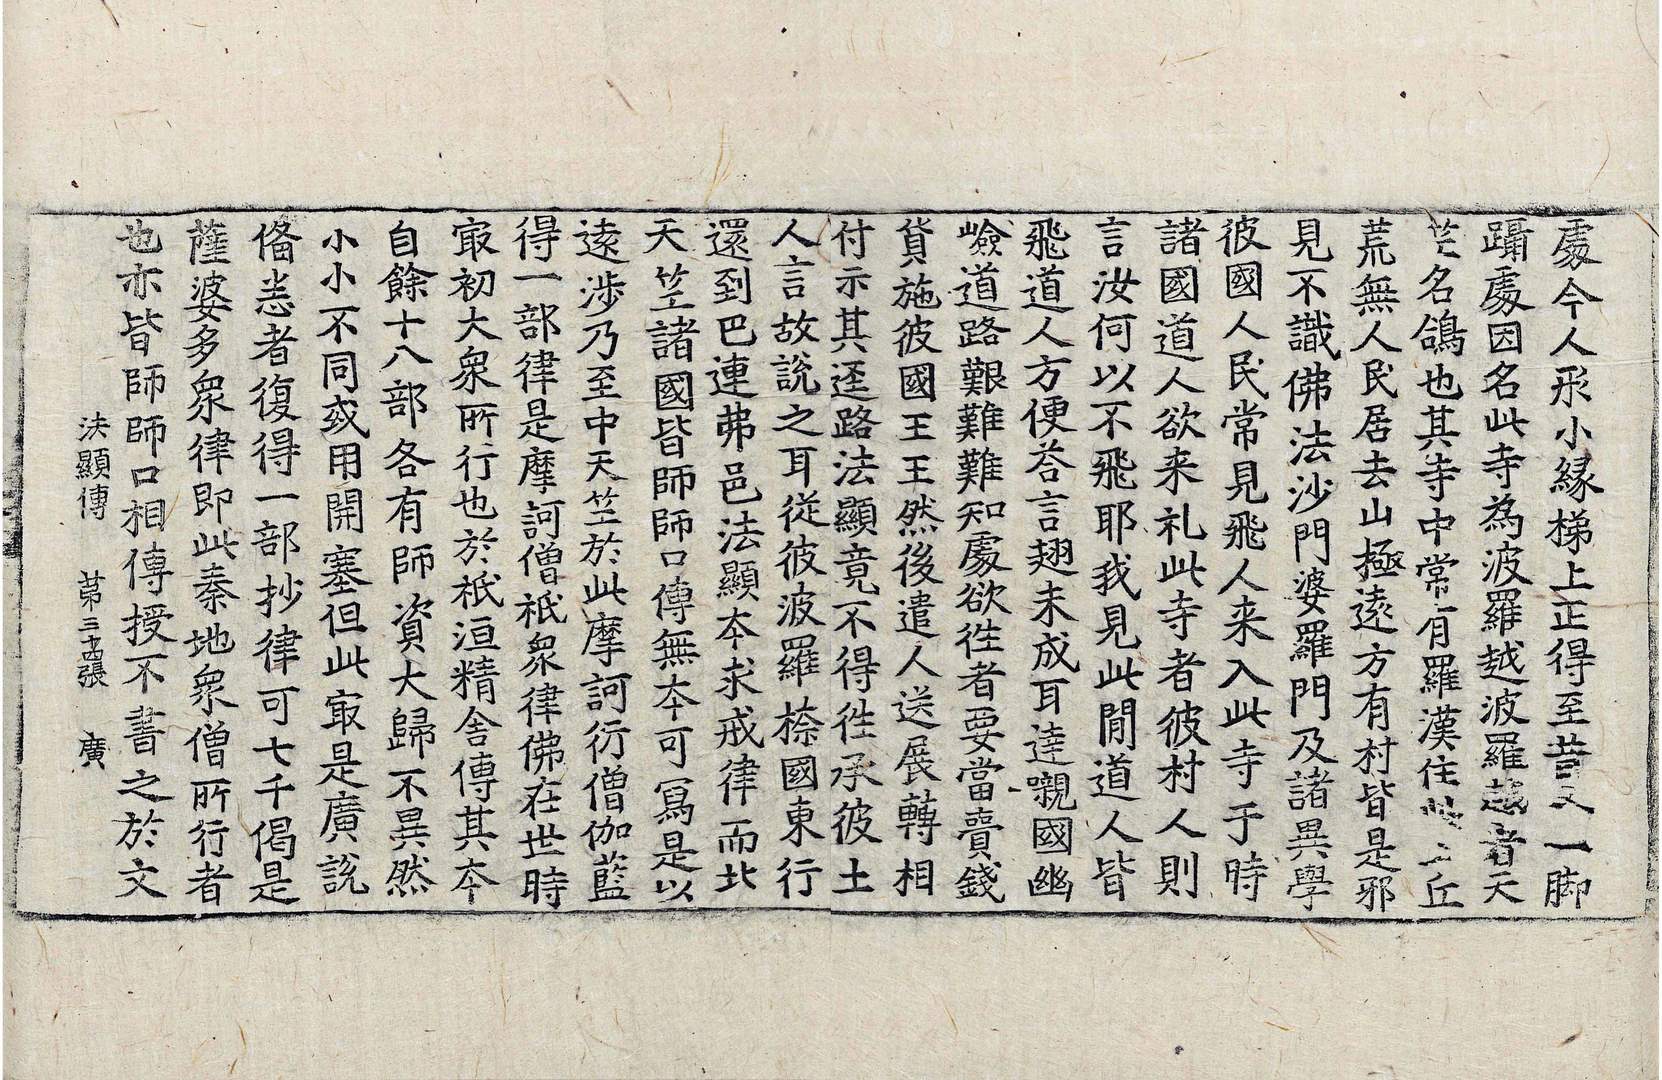 處今人形小緣梯上正得至昔人一脚
躡處因名此寺為波羅越波羅越者天
竺名鴿也其寺中常有羅漢住此土丘
荒無人民居去山極遠方有村皆是邪
見不識佛法沙門婆羅門及諸異學
彼國人民常見飛人来入此寺于時
諸國道人欲来礼此寺者彼村人則
言汝何以不飛耶我見此閒道人皆
飛道人方便荅言翅未成耳達嚫國幽
嶮道路艱難難知處欲徃者要當賣錢
貨施彼國王王然後遣人送展轉相
付示其逕路法顯竟不得徃承彼土
人言故說之耳從彼波羅㮈國東行
還到巴連弗邑法顯夲求戒律而北
天竺諸國皆師師口傳無夲可冩是以
遠涉乃至中天竺於此摩訶衍僧伽藍
得一部律是摩訶僧祇衆律佛在世時
㝡初大衆所行也於祇洹精舍傳其夲
自餘十八部各有師資大歸不異然
小小不同或用開塞但此㝡是廣說
俻悉者復得一部抄律可七千偈是
薩婆多衆律即此秦地衆僧所行者
也亦皆師師口相傳授不書之於文
法顯傳 苐三十四張 廣